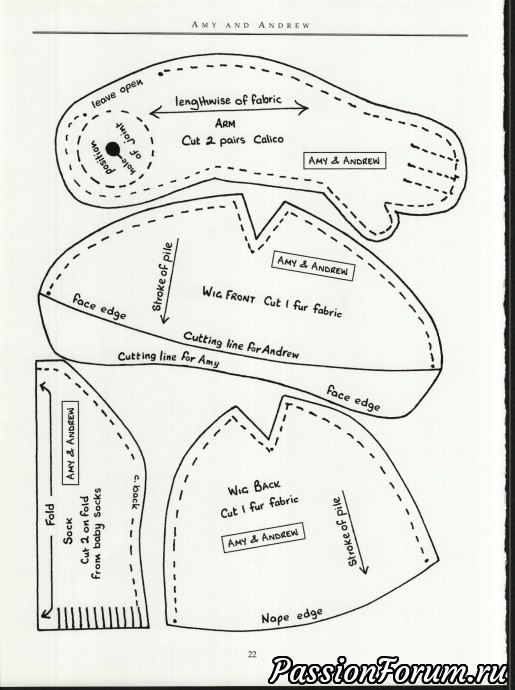 AMY AND ANDREW
leave open
lengthwise of fabric
ARM
Cut 2 pairs Calico
position
of joint
hole
AMY & ANDREW
Stroke of pile
AMY & ANDREW
WIG FRONT Cut 1 fur fabric
face edge
Cutting line for Andrew
Cutting line for Amy
face edge
Fold
SOCK
Cut 2 on fold
from baby socks
AMY & ANDREW
c. back
WIG BACK
Cut 1 fur fabric
AMY & ANDREW
Stroke of pile
Nape edge
22
PassionForum.ru